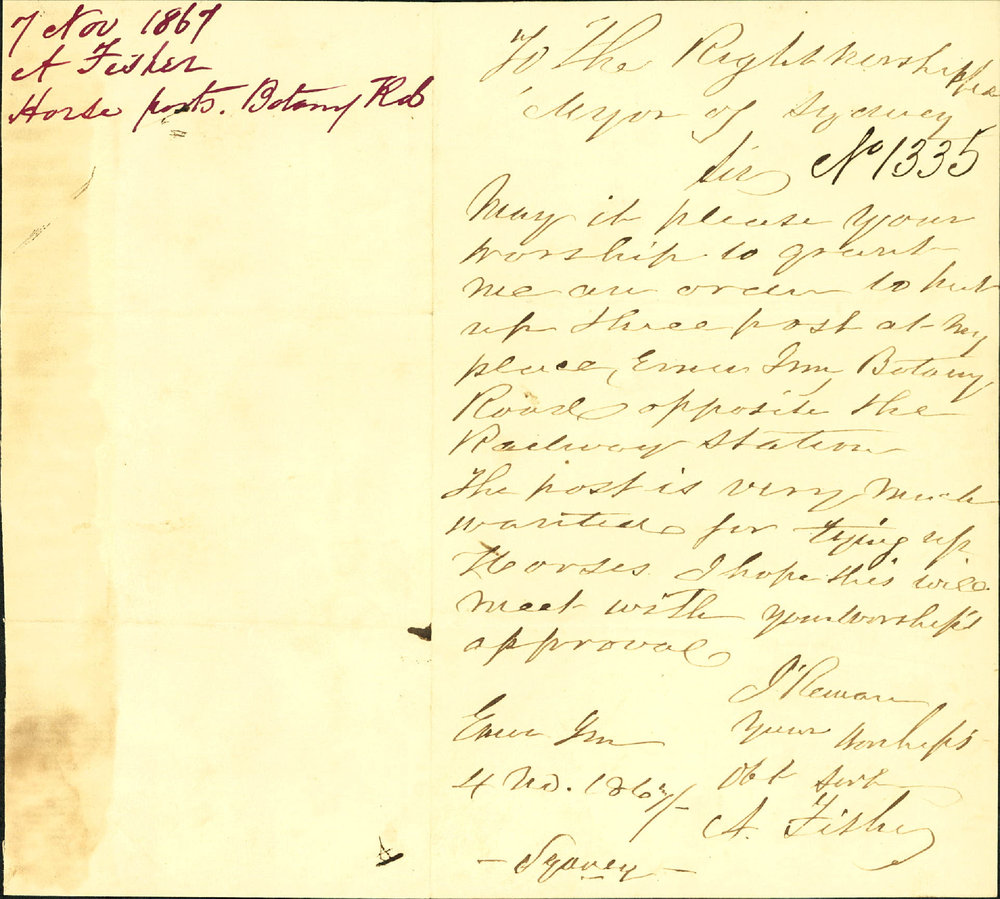 7 Nov 1867
A Fisher
Horse posts. Botany Rd
To The Right Worshipful
Mayor of Sydney
Sir No 1335
May it please your
worship to grant
me an order to put
up three post at my
place, Emu Inn Botany
Road opposite the
Railway Station
The post is very much
wanted for tying up
Horses. I hope this will
meet with your worship's
approval
I Remain
Your Worship's
Obt Servt
A. Fisher
Emu Inn
4 No. 1867/-
- Sydney -